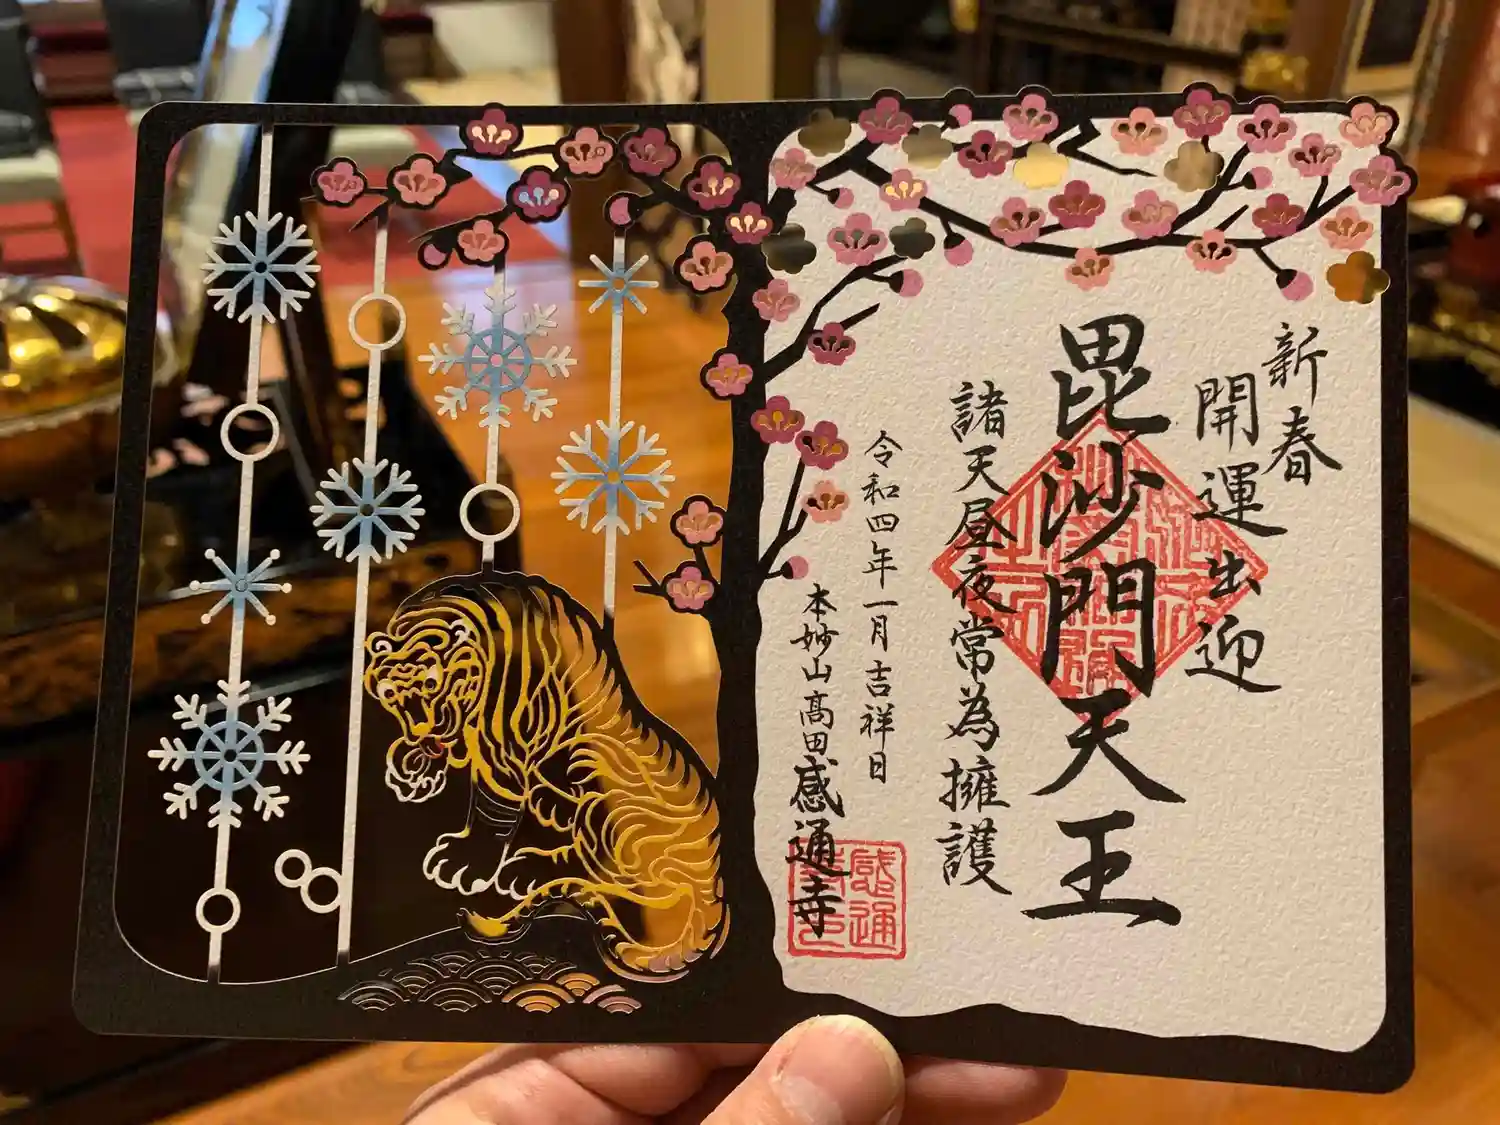 新春
開運出迎
毘沙門天王
諸天昼夜常為擁護
令和四年一月吉祥日
本妙山高田感通寺
感通